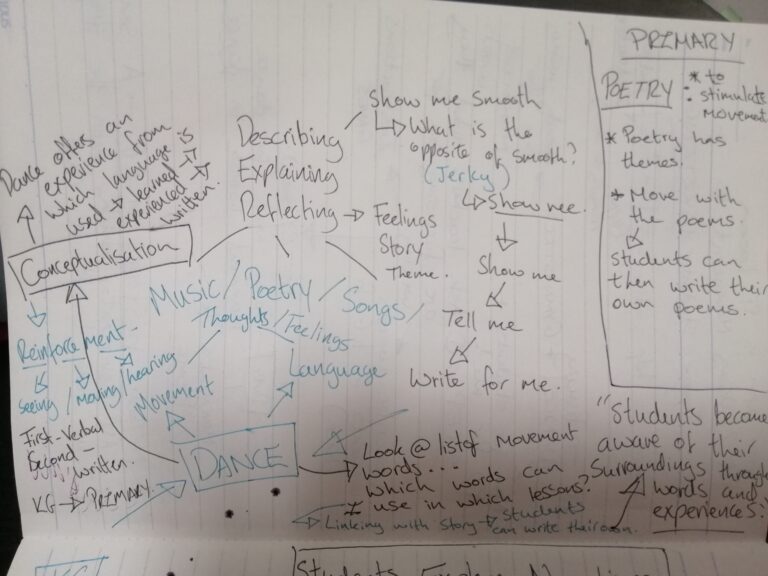 Dance offers an
experience from
which language is
used → learned →
experienced →
written.
Conceptualisation
Reinforcement.
Seeing / Moving / hearing
First - Verbal
Second -
written.
KG → PRIMARY.
Describing
Explaining
Reflecting → Feelings
Story
Theme.
Show me smooth
What is the
opposite of smooth?
(Jerky)
Show me.
Show me
Tell me
Write for me.
Music / Poetry / Songs /
Thoughts / Feelings
Movement
Language
DANCE
Look @ list of Movement
words...
which words can
I use in which lessons?
Linking with Story → Students
can write their own.
PRIMARY
POETRY : * to
stimulate
Movement
* Poetry has
themes.
* Move with
the poems.
Students can
then write their
own poems.
"Students become
aware of their
Surroundings through
words and
experiences."